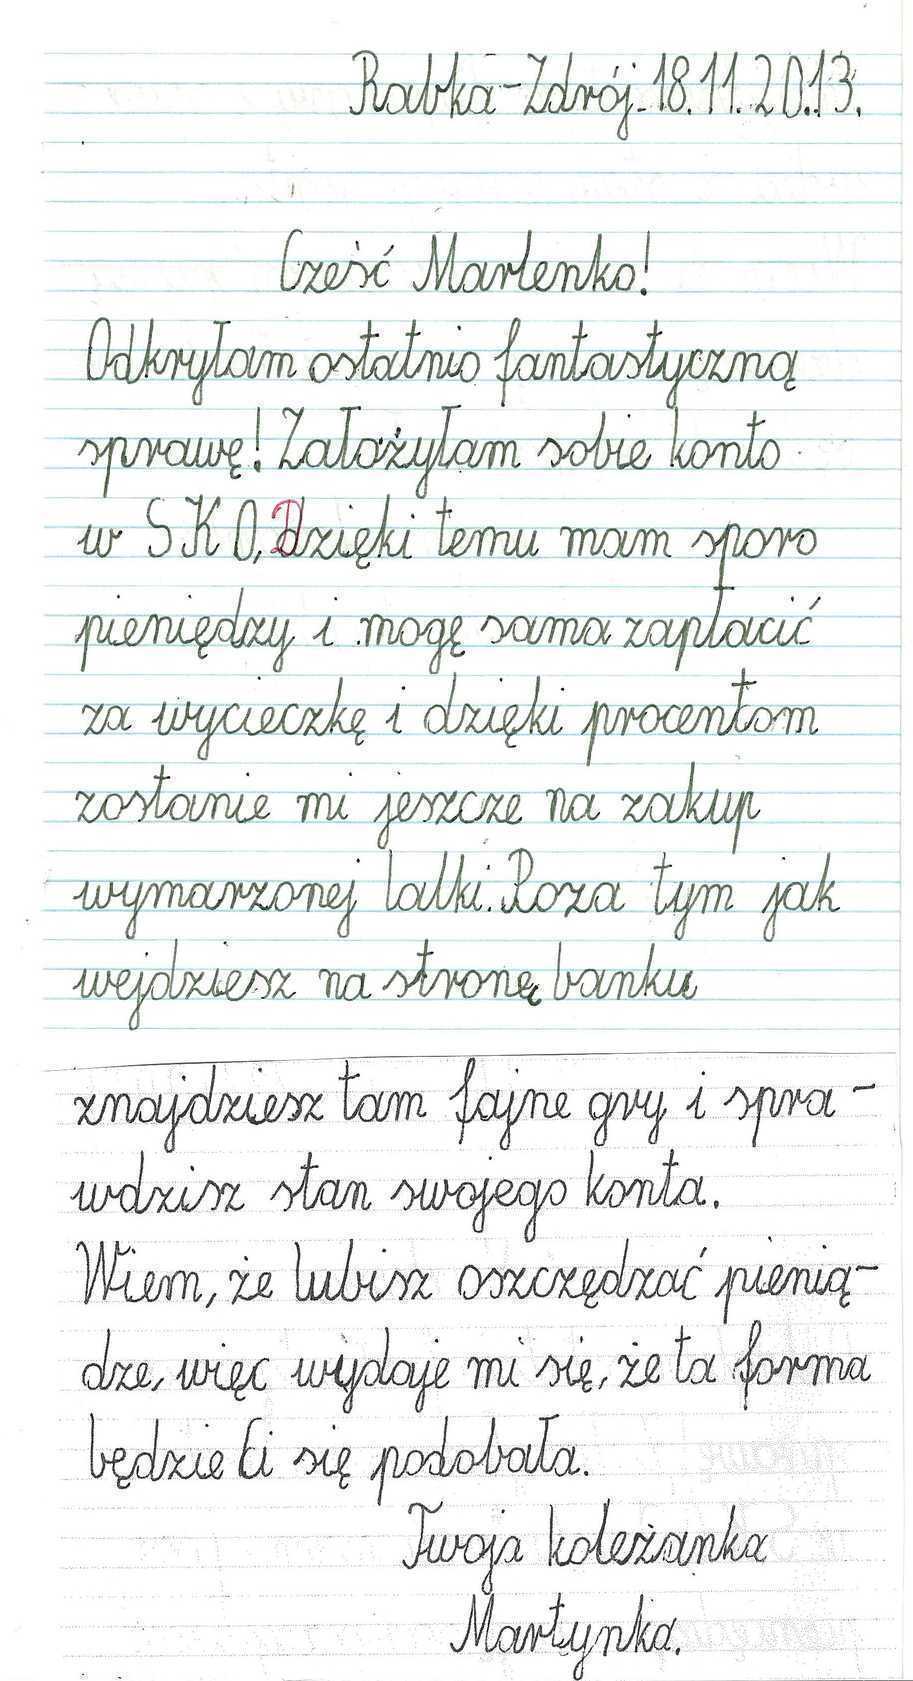 Rabka-Zdrój. 18.11.2013.
Cześć Marlenko!
Odkryłam ostatnio fantastyczną
sprawę! Założyłam sobie konto
w SKO. Dzięki temu mam sporo
pieniędzy i mogę sama zapłacić
za wycieczkę i dzięki procentom
zostanie mi jeszcze na zakup
wymarzonej lalki. Poza tym jak
wejdziesz na stronę banku
znajdziesz tam fajne gry i spra-
wdzisz stan swojego konta.
Wiem, że lubisz oszczędzać pienią-
dze, więc wydaje mi się, że ta forma
będzie Ci się podobała.
Twoja koleżanka
Martynka.